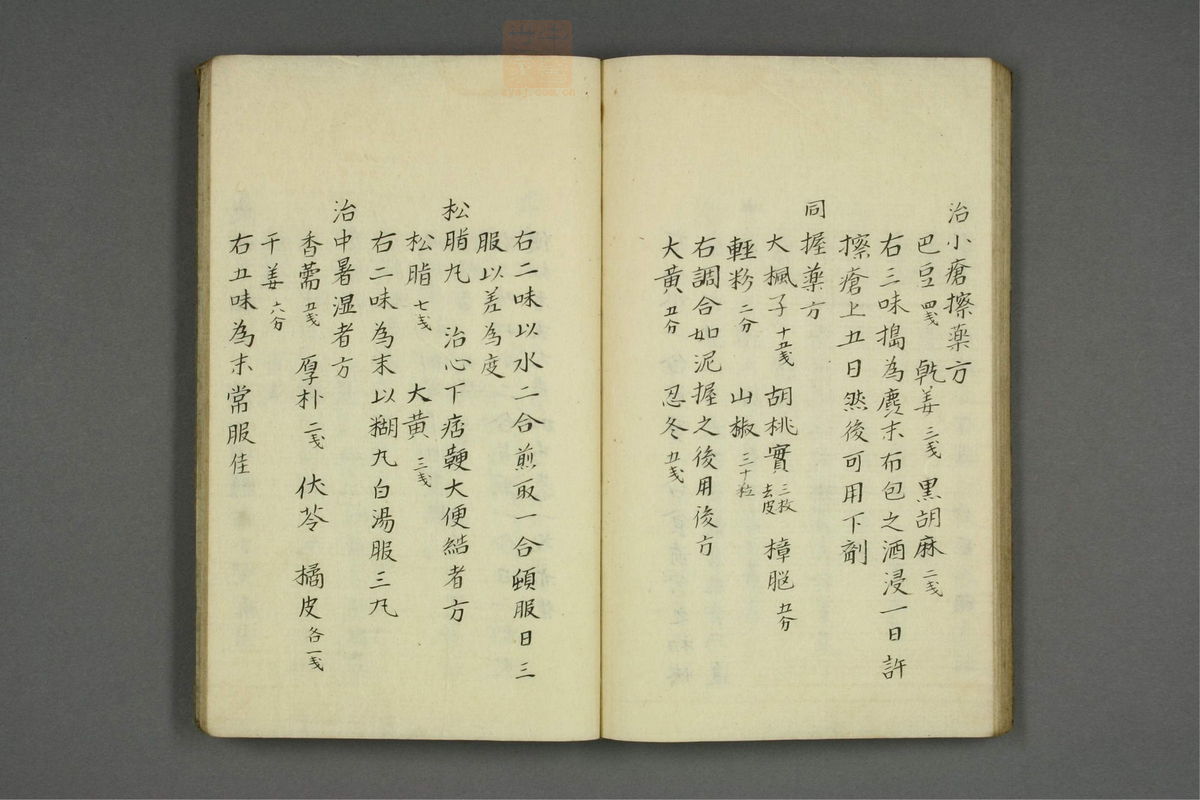 治小瘡擦薬方
巴豆四戔 乾姜三戔 黒胡麻二戔
右三味搗為麁末布包之酒浸一日許
擦瘡上五日然後可用下劑
同握薬方
大楓子十五戔 胡桃實三枚去皮 樟脳五分
輕粉二分 山椒三十粒
右調合如泥握之後用後方
大黄五分 忍冬五戔
右二味以水二合煎取一合頓服日三
服以差為度
松脂丸 治心下痞鞕大便結者方
松脂七戔 大黄三戔
右二味為末以糊丸白湯服三丸
治中暑湿者方
香薷五戔 厚朴二戔 伏苓 橘皮各一戔
干姜六分
右五味為末常服佳